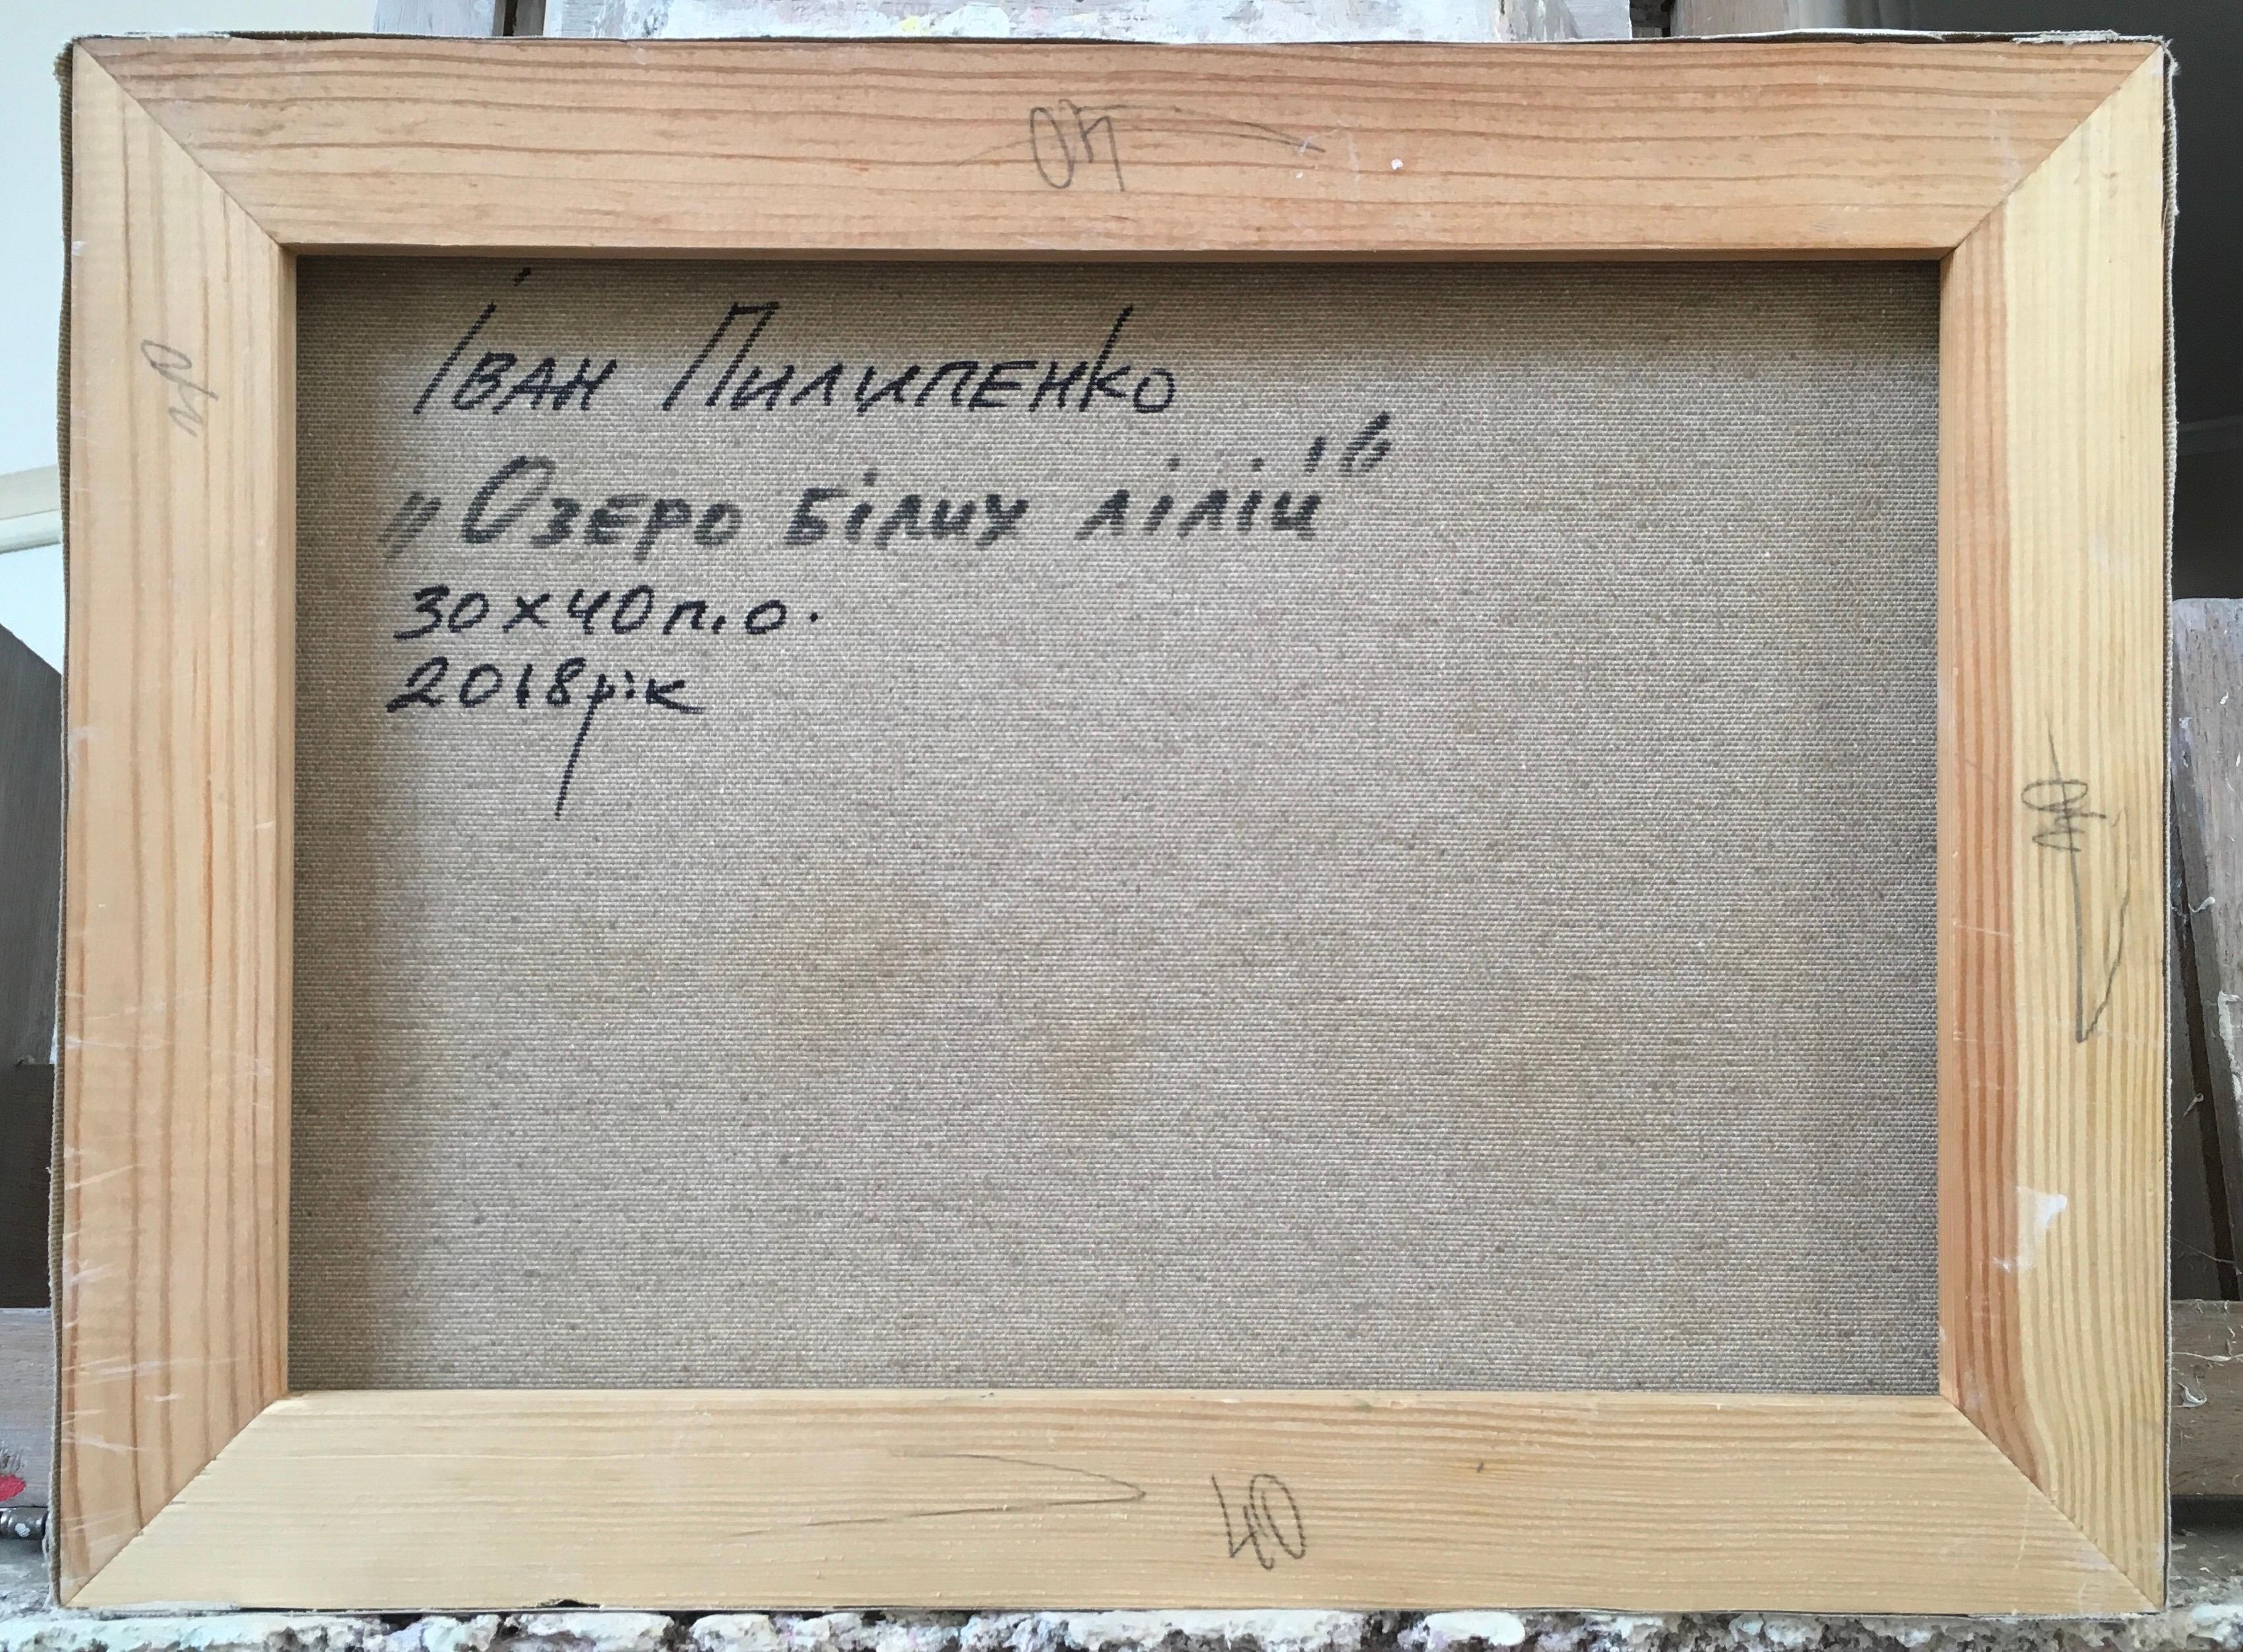 40
Іван Пилипенко
„Озеро білих лілій"
30х40 п.о.
2018 рік
40